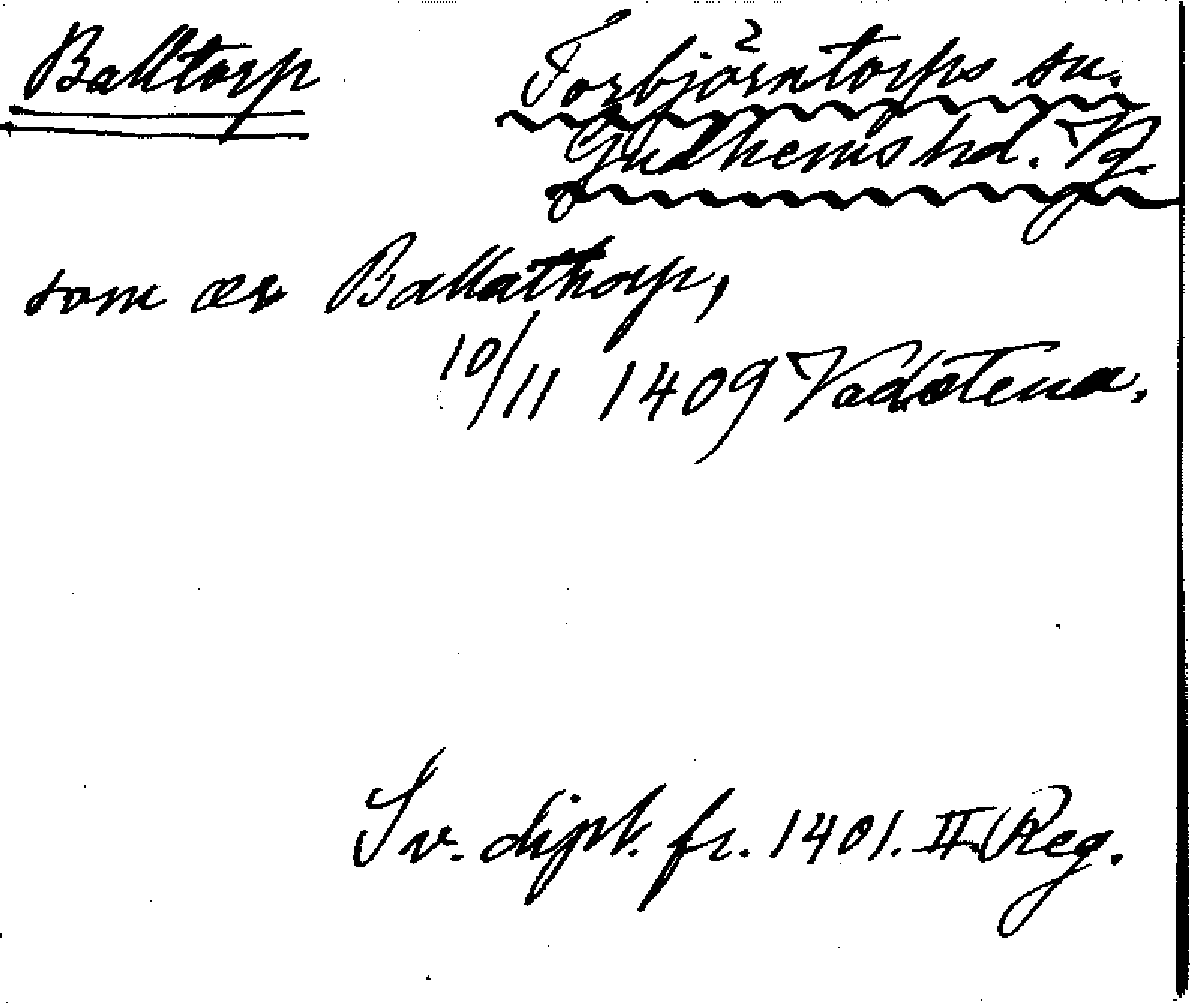 Balltorp
Torbjörntorps sn.
Gudhems hd. Vg.
som ær Ballathorp,
10/11 1409 Vadstena.
Sv. dipl. fr. 1401. II Reg.